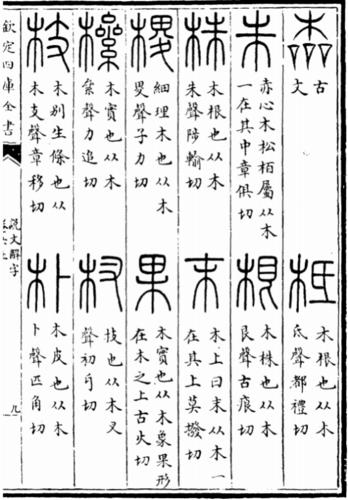 古
文
柢
木根也从木
氐聲都禮切
朱
赤心木松柏屬从木
一在其中章俱切
根
木株也从木
艮聲古痕切
株
木根也从木
朱聲陟輸切
末
木上曰末从木一
在其上莫撥切
㮨
細理木也从木
畟聲子力切
果
木實也从木象果形
在木之上古火切
木實也从木
絫聲力追切
杈
枝也从木叉
聲初牙切
枝
木別生條也从
木支聲章移切
朴
木皮也从木
卜聲匹角切
欽定四庫全書
說文解字
卷六上
九